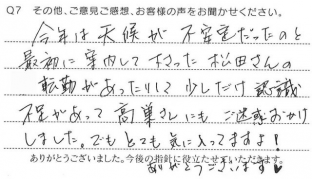 Q7 その他、ご意見ご感想、お客様の声をお聞かせください。
今年は天候が不安定だったのと
最初に案内して下さった松田さんの
転勤があったりして少しだけ認識
不足があって高巣さんにもご迷惑おかけ
しました。でもとても気に入ってますよ!
ありがとうございました。今後の指針に役立たせていただきます。
ありがとうございます♥